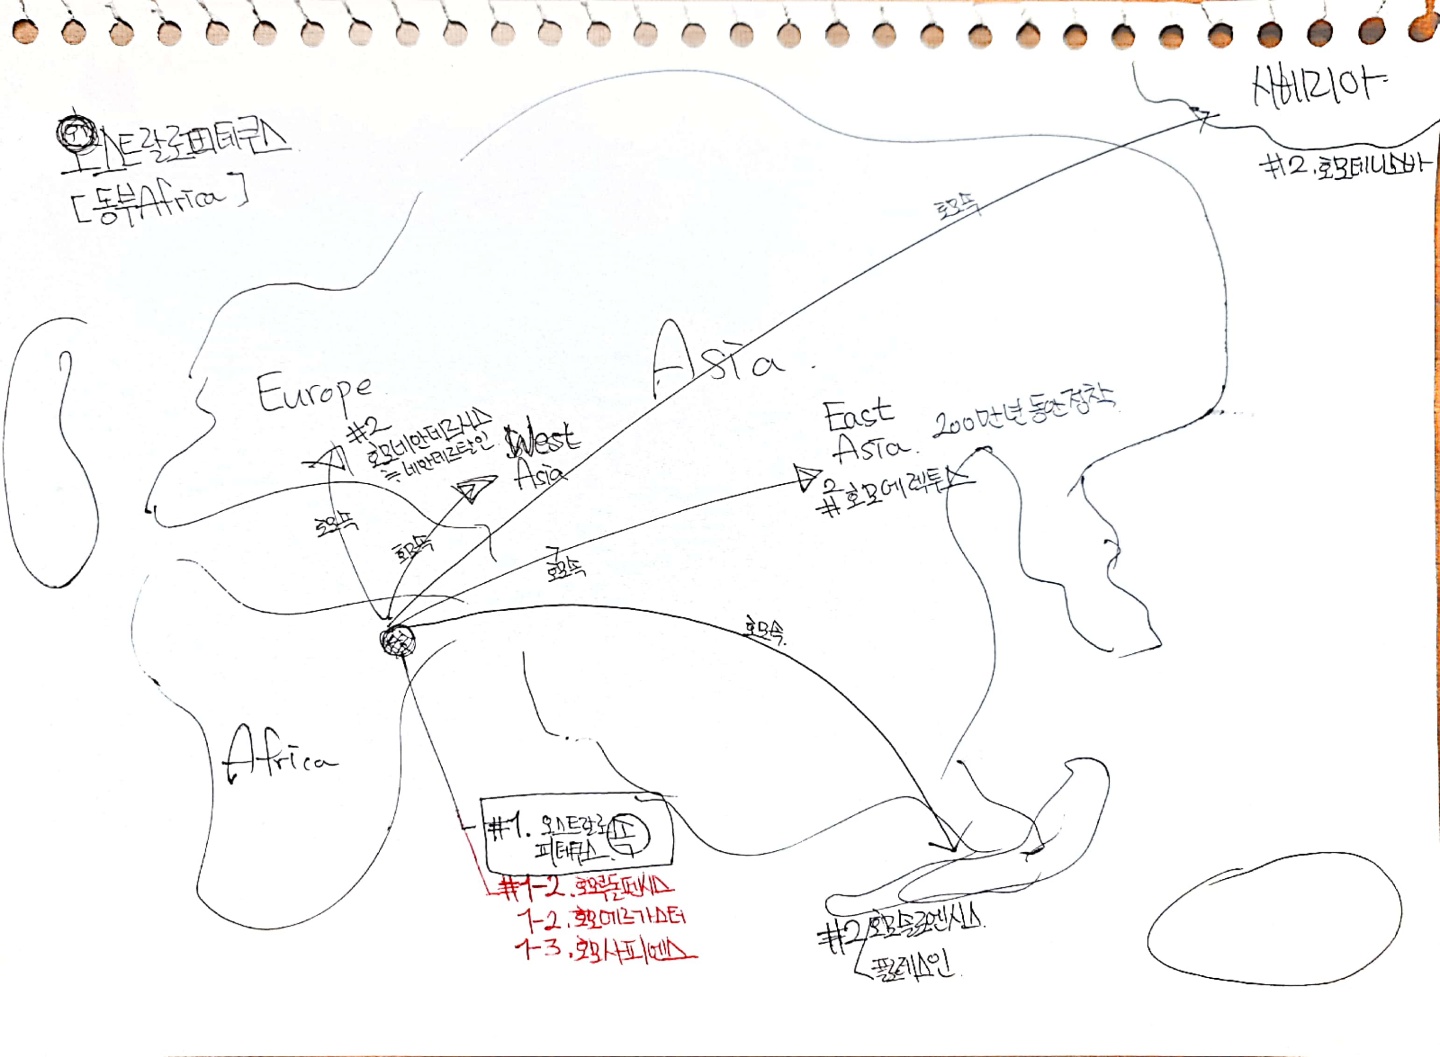 오스트랄로피테쿠스
[동부Africa]
시베리아
#2. 호모데니소바
호모속
Asia.
Europe
#2
호모네안데르시스
≒네안데르탈인
West
Asia
East
Asia.
200만년 동안 정착
#2 호모에렉투스
호모속
호모속
호모속
호모속
Africa
#1. 오스트랄로
피테쿠스 속
#1-2. 호모루돌펜시스
1-2. 호모에르가스터
1-3. 호모사피엔스
#2 호모솔로엔시스
플로레스인